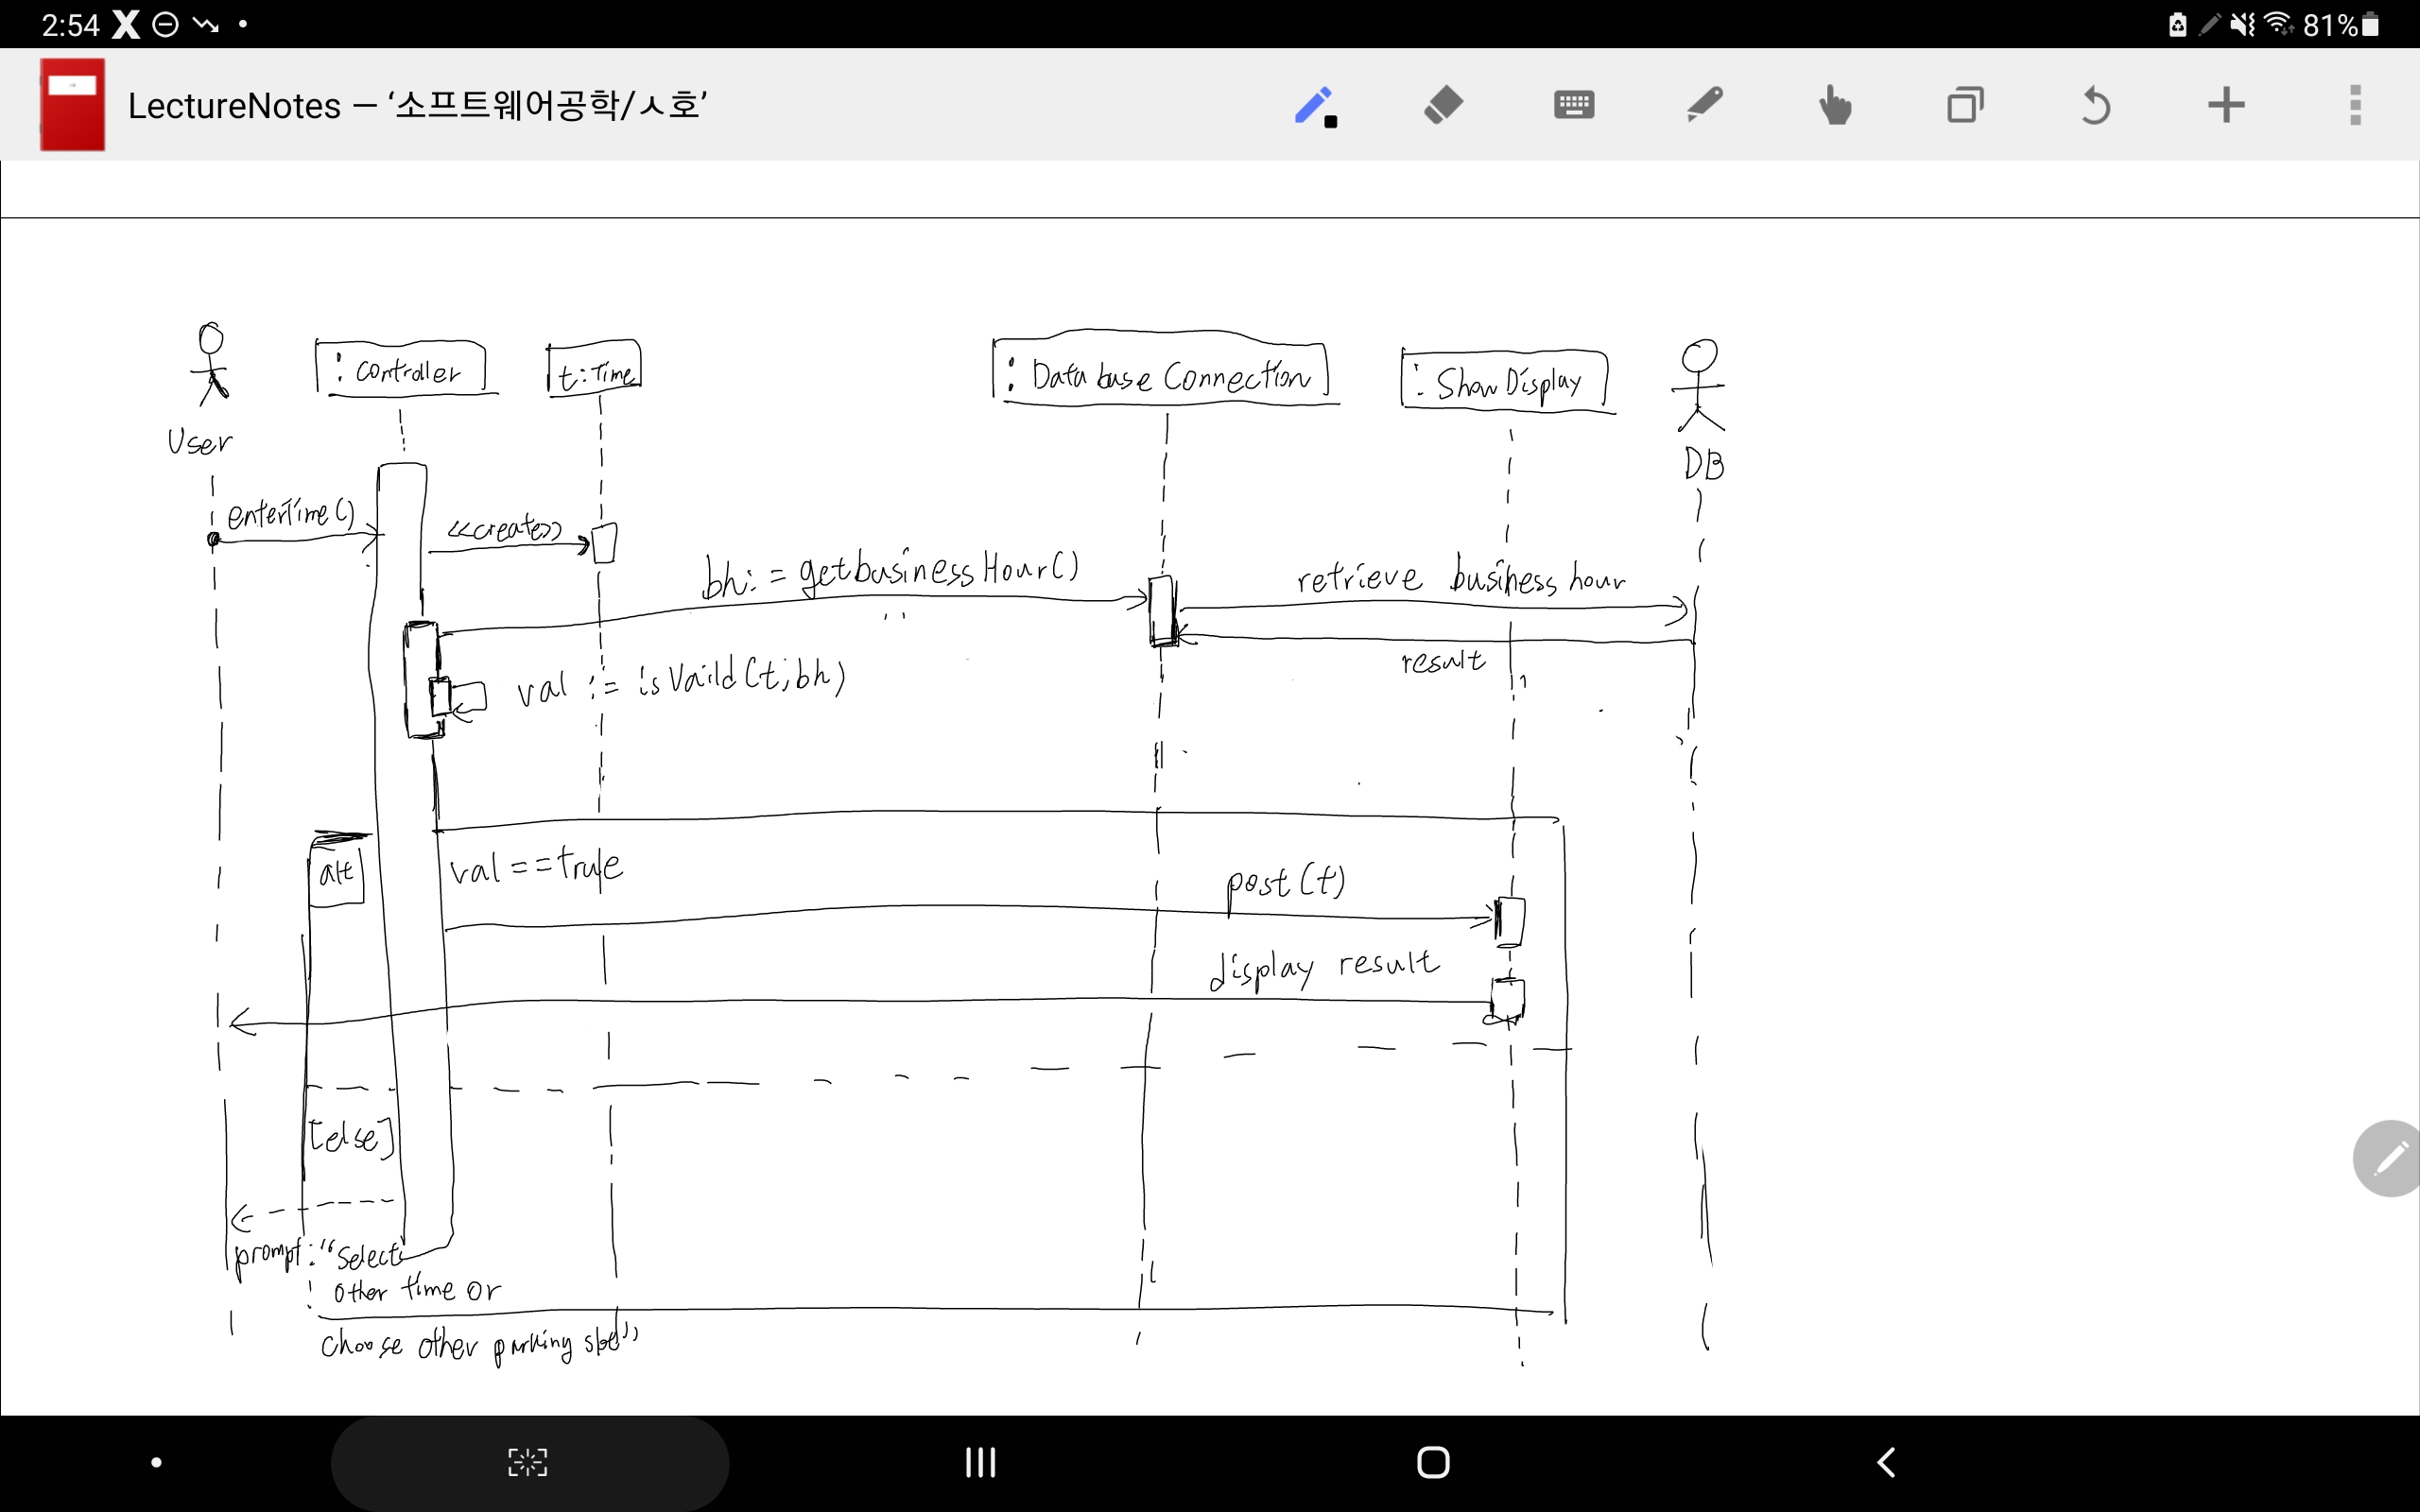 2:54
81%
LectureNotes — ‘소프트웨어공학/ㅅ호’
: Controller
t:Time
: Database Connection
: ShowDisplay
User
DB
enterTime()
<<create>>
bh:=getbusinessHour()
retrieve business hour
result
val := isVaild(t,bh)
alt
val==true
post(t)
display result
[else]
prompt:"Select
other time or
choose other parking